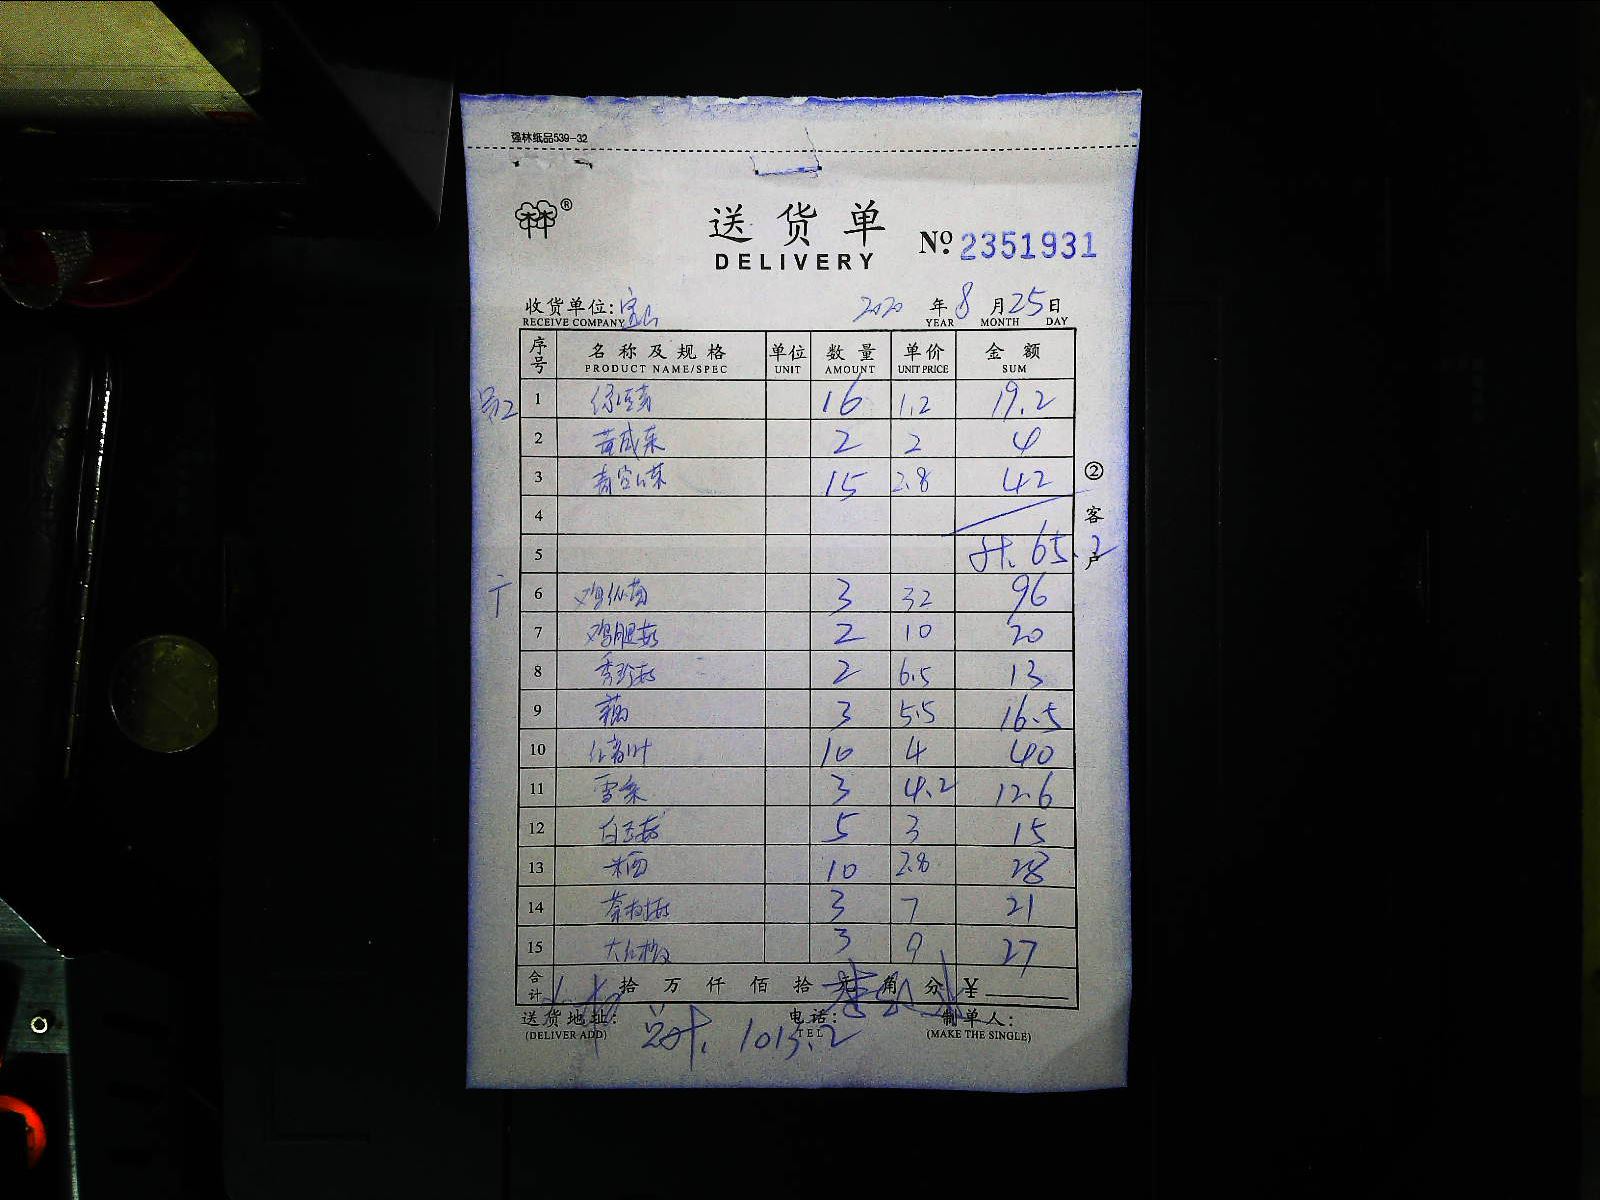 强林纸品539-32
®
送货单
DELIVERY
№ 2351931
收货单位: 宝山 2020 年 8 月 25 日
RECEIVE COMPANY YEAR MONTH DAY
序号 名称及规格 单位 数量 单价 金额
PRODUCT NAME/SPEC UNIT AMOUNT UNIT PRICE SUM
1 绿豆芽 16 1.2 19.2
2 黄咸菜 2 2 4
3 15 2.8 42
4
5 计. 65.2
6 鸡枞菌 3 32 96
7 鸡腿菇 2 10 20
8 秀珍菇 2 6.5 13
9 藕 3 5.5 16.5
10 10 4 40
11 雪菜 3 4.2 12.6
12 白玉菇 5 3 15
13 米面 10 2.8 28
14 茶树菇 3 7 21
15 大红椒 3 9 27
合计 拾 万 仟 佰 拾 元 角 分 ¥
送货地址: 电话: 制单人:
(DELIVER ADD) TEL (MAKE THE SINGLE)
总计. 1013.2
②客户